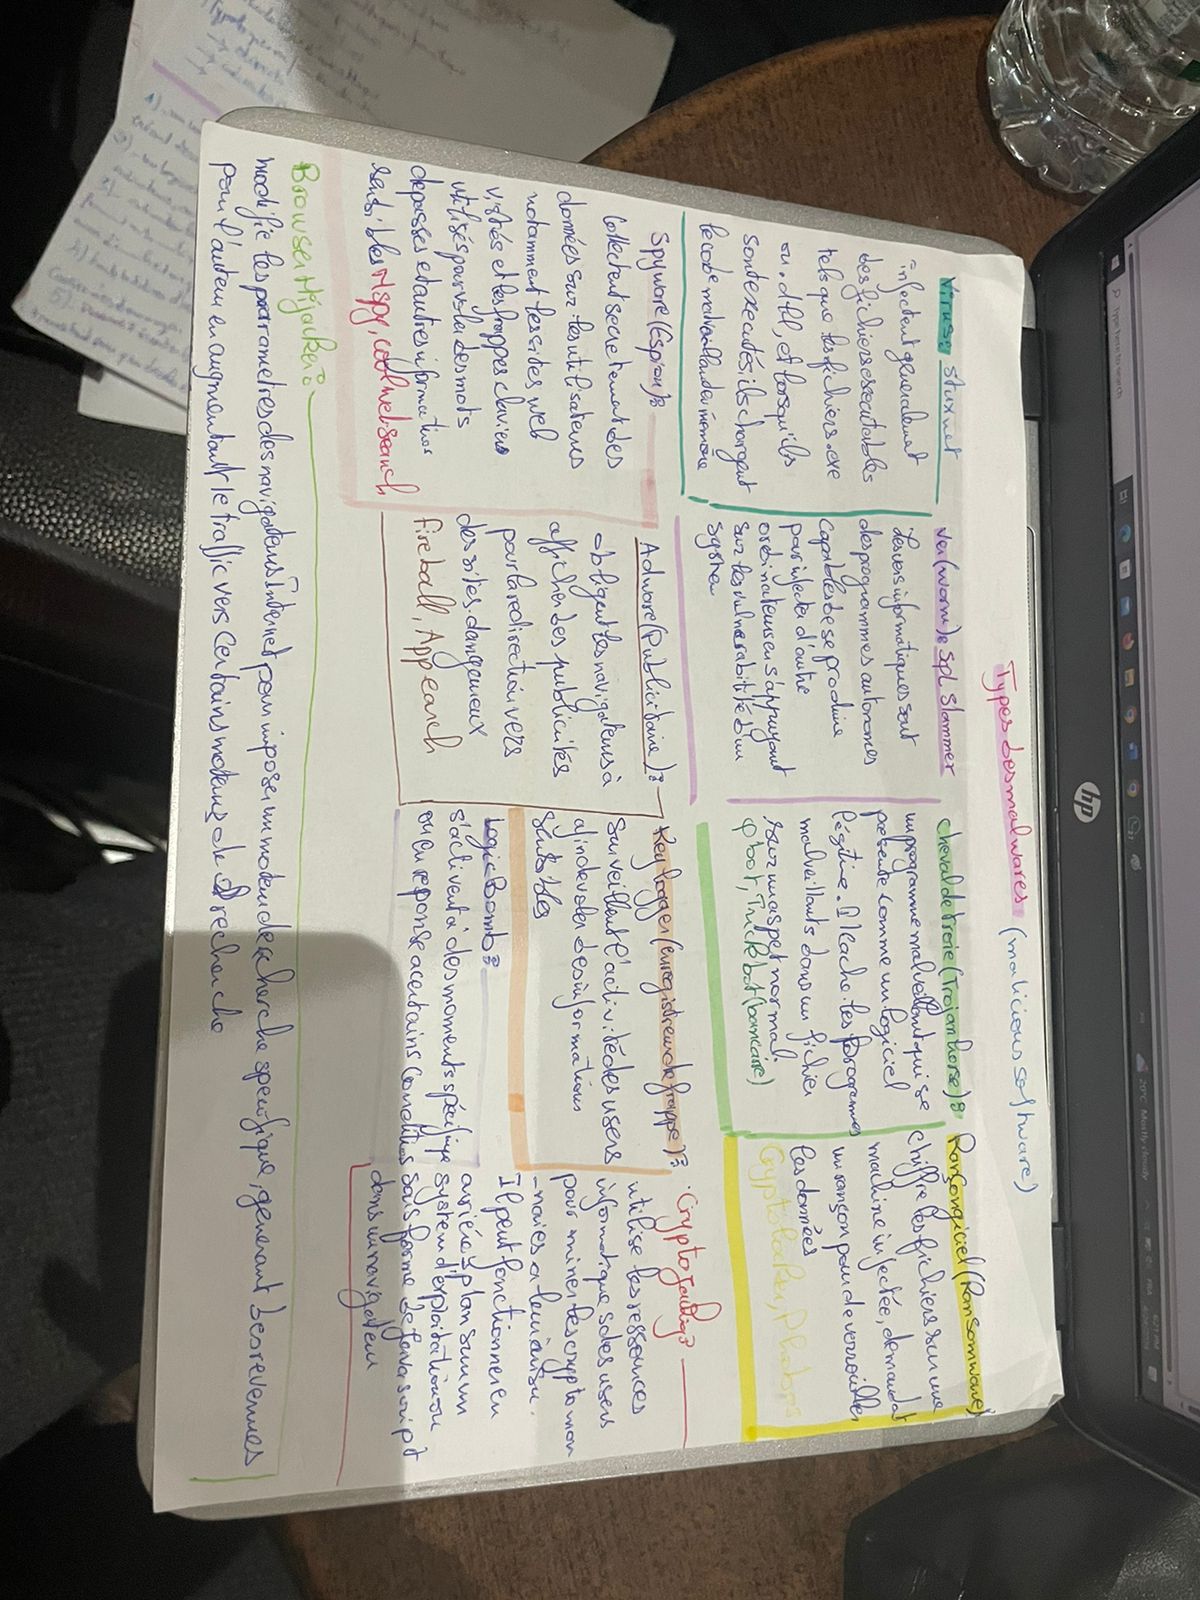 Type here to search
20°C Mostly cloudy
FRA
hp
Types des malwares (malicious software)
Virus: Stuxnet
infectent generalement
des fichiers executables
tels que les fichiers .exe
ou .dll, et lorsqu'ils
sont executés, ils chargent
le code
Ver (worm): Sql Slammer
Les vers informatiques sont
des programmes autonomes
capables de se produire
pour infecter d'autre
ordinateurs en s'appuyant
sur les d'un
syste
Cheval de troie (Trojan horse):
un programme malveillant qui se
présente comme un logiciel
légitine. Il cache les programmes
malveillants dans un fichier
sur un aspet normal.
Qbot, Trickbot (bancaire)
Rançongiciel (Ransomware)
chiffre les fichiers sur une
machine infectée, demandat
un rançon pour deverrouiller
les données
Cryptolocker,
Spyware (Espion):
Collectent secretement des
données sur les utilisateurs
notamment les sites web
visités et les frappes claviers
utilisés pour voler des mots
de passes et autres informations
sensibles coolwebsearch
Adware (Publicitaire):
obligent les navigateurs à
afficher des publicités
pour la redirection vers
des sites dangereux
Fireball, Appearch
Key logger (enregistreur de frappe):
surveillent l'activité des users
afin de voler des informations
sensibles
Logic Bomb:
s'activent à des moments spécifique
ou en reponse a certains conditions
Cryptojacking:
utilise les ressources
informatiques des users
pour miner les crypto mon
-naies a leur insu.
Il peut fonctionner en
arriére plan sur un
system d'exploitation ou
sous forme de Javascript
dans un navigateur
Browser Hijacker:
modifie les parametres des navigateurs Internet pour imposer un moteur de recherche specifique, generant des revenues
pour l'auteur en augmentant le traffic vers certains moteurs de recherche